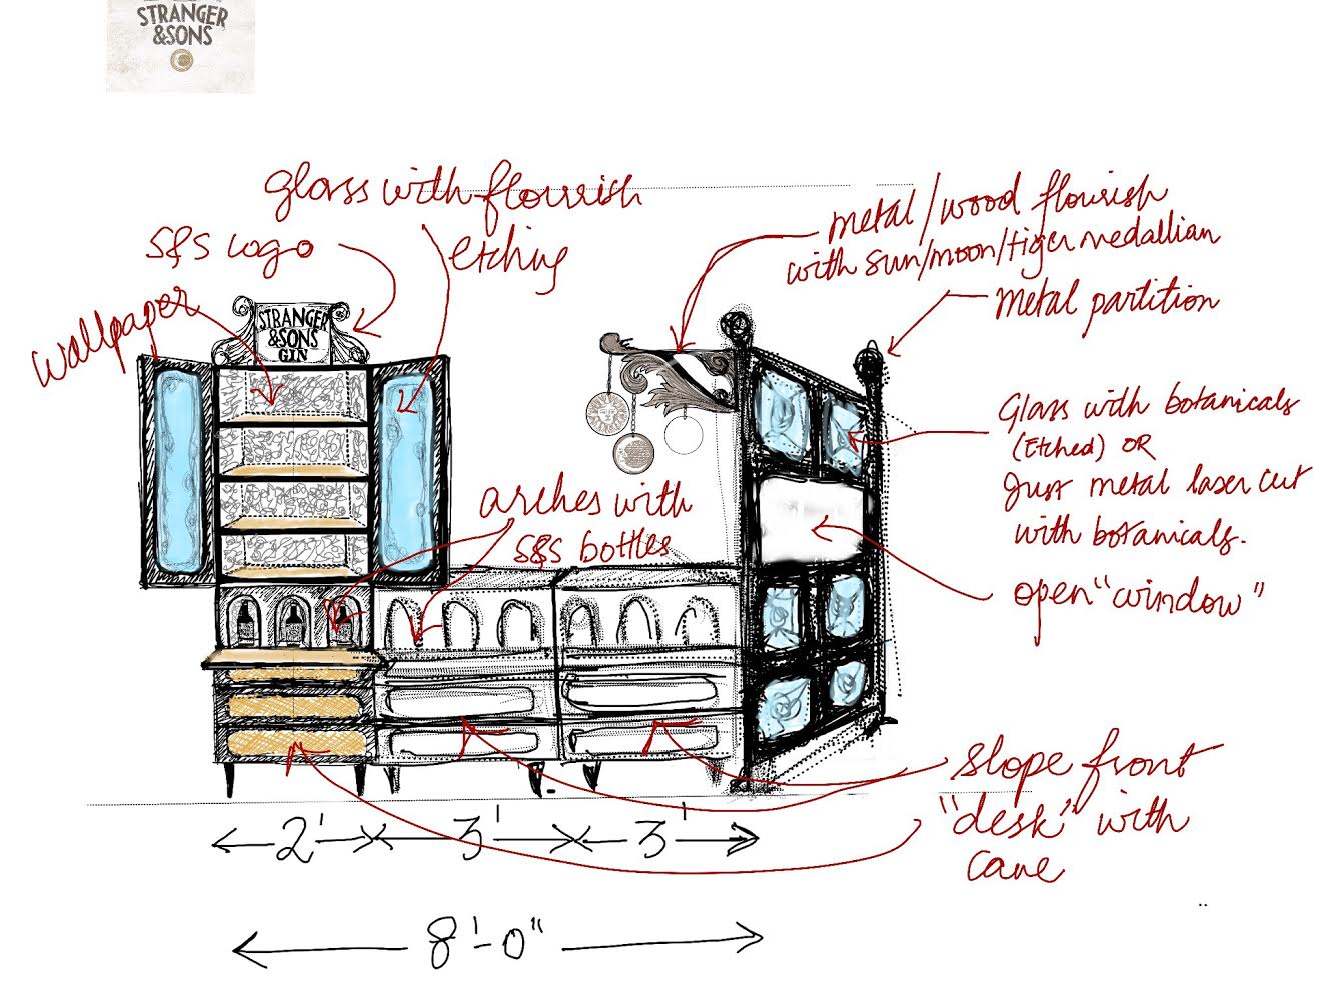 STRANGER
&SONS
glass with flourish
etching
S&S logo
wallpaper
STRANGER
&SONS
GIN
metal/wood flourish
with sun/moon/tiger medallian
Metal partition
Glass with botanicals
(Etched) OR
Just metal laser cut
with botanicals.
arches with
S&S bottles
open "window"
slope front
"desk" with
cane
2' 3' 3'
8'-0"